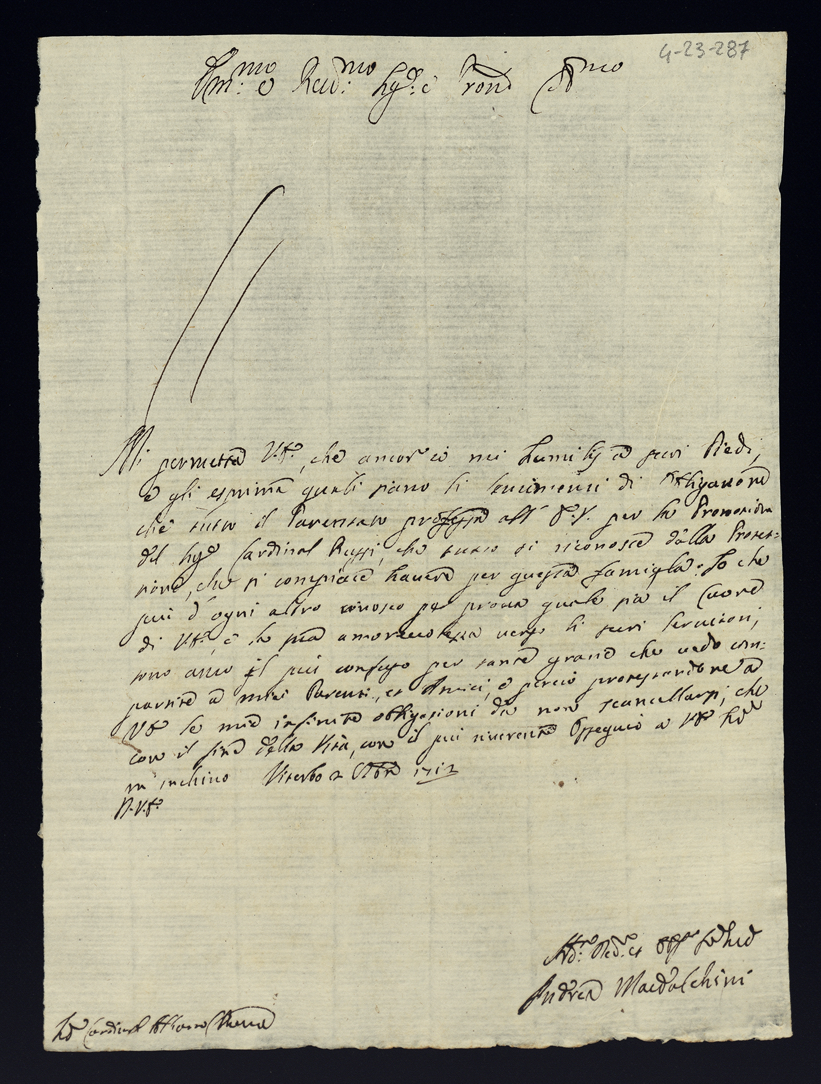 4-23-287
Em:mo e Reu:mo Sig:e e Pron Col:mo
Mi permetta V.E., che ancor io mi humilij a suoi Piedi,
e gli esprima quali siano li sentimenti di obligazione
che tutto il Parentato professa all' E.V. per la Promozione
del Sig.e Cardinal Bussi, che tutto si riconosce dalla Protez=
zione, che si compiace havere per questa famiglia: Io che
più d'ogni altro conosco per prova quale sia il Cuore
di V.E., e la sua amorevolezza verso li suoi Servitori,
sono anco il più confuso per tante grazie che vedo com=
partite a miei Parenti, et Amici, e perciò protestandone a
V.E. le mie infinite obbligazioni da non scancellarsi, che
con il fine della Vita, con il più riverente Ossequio a V.E.
m'inchino Viterbo 2 1712
D.V.E.
Hu:mo Deu:mo et
Andrea Maidalchini
Cardinal